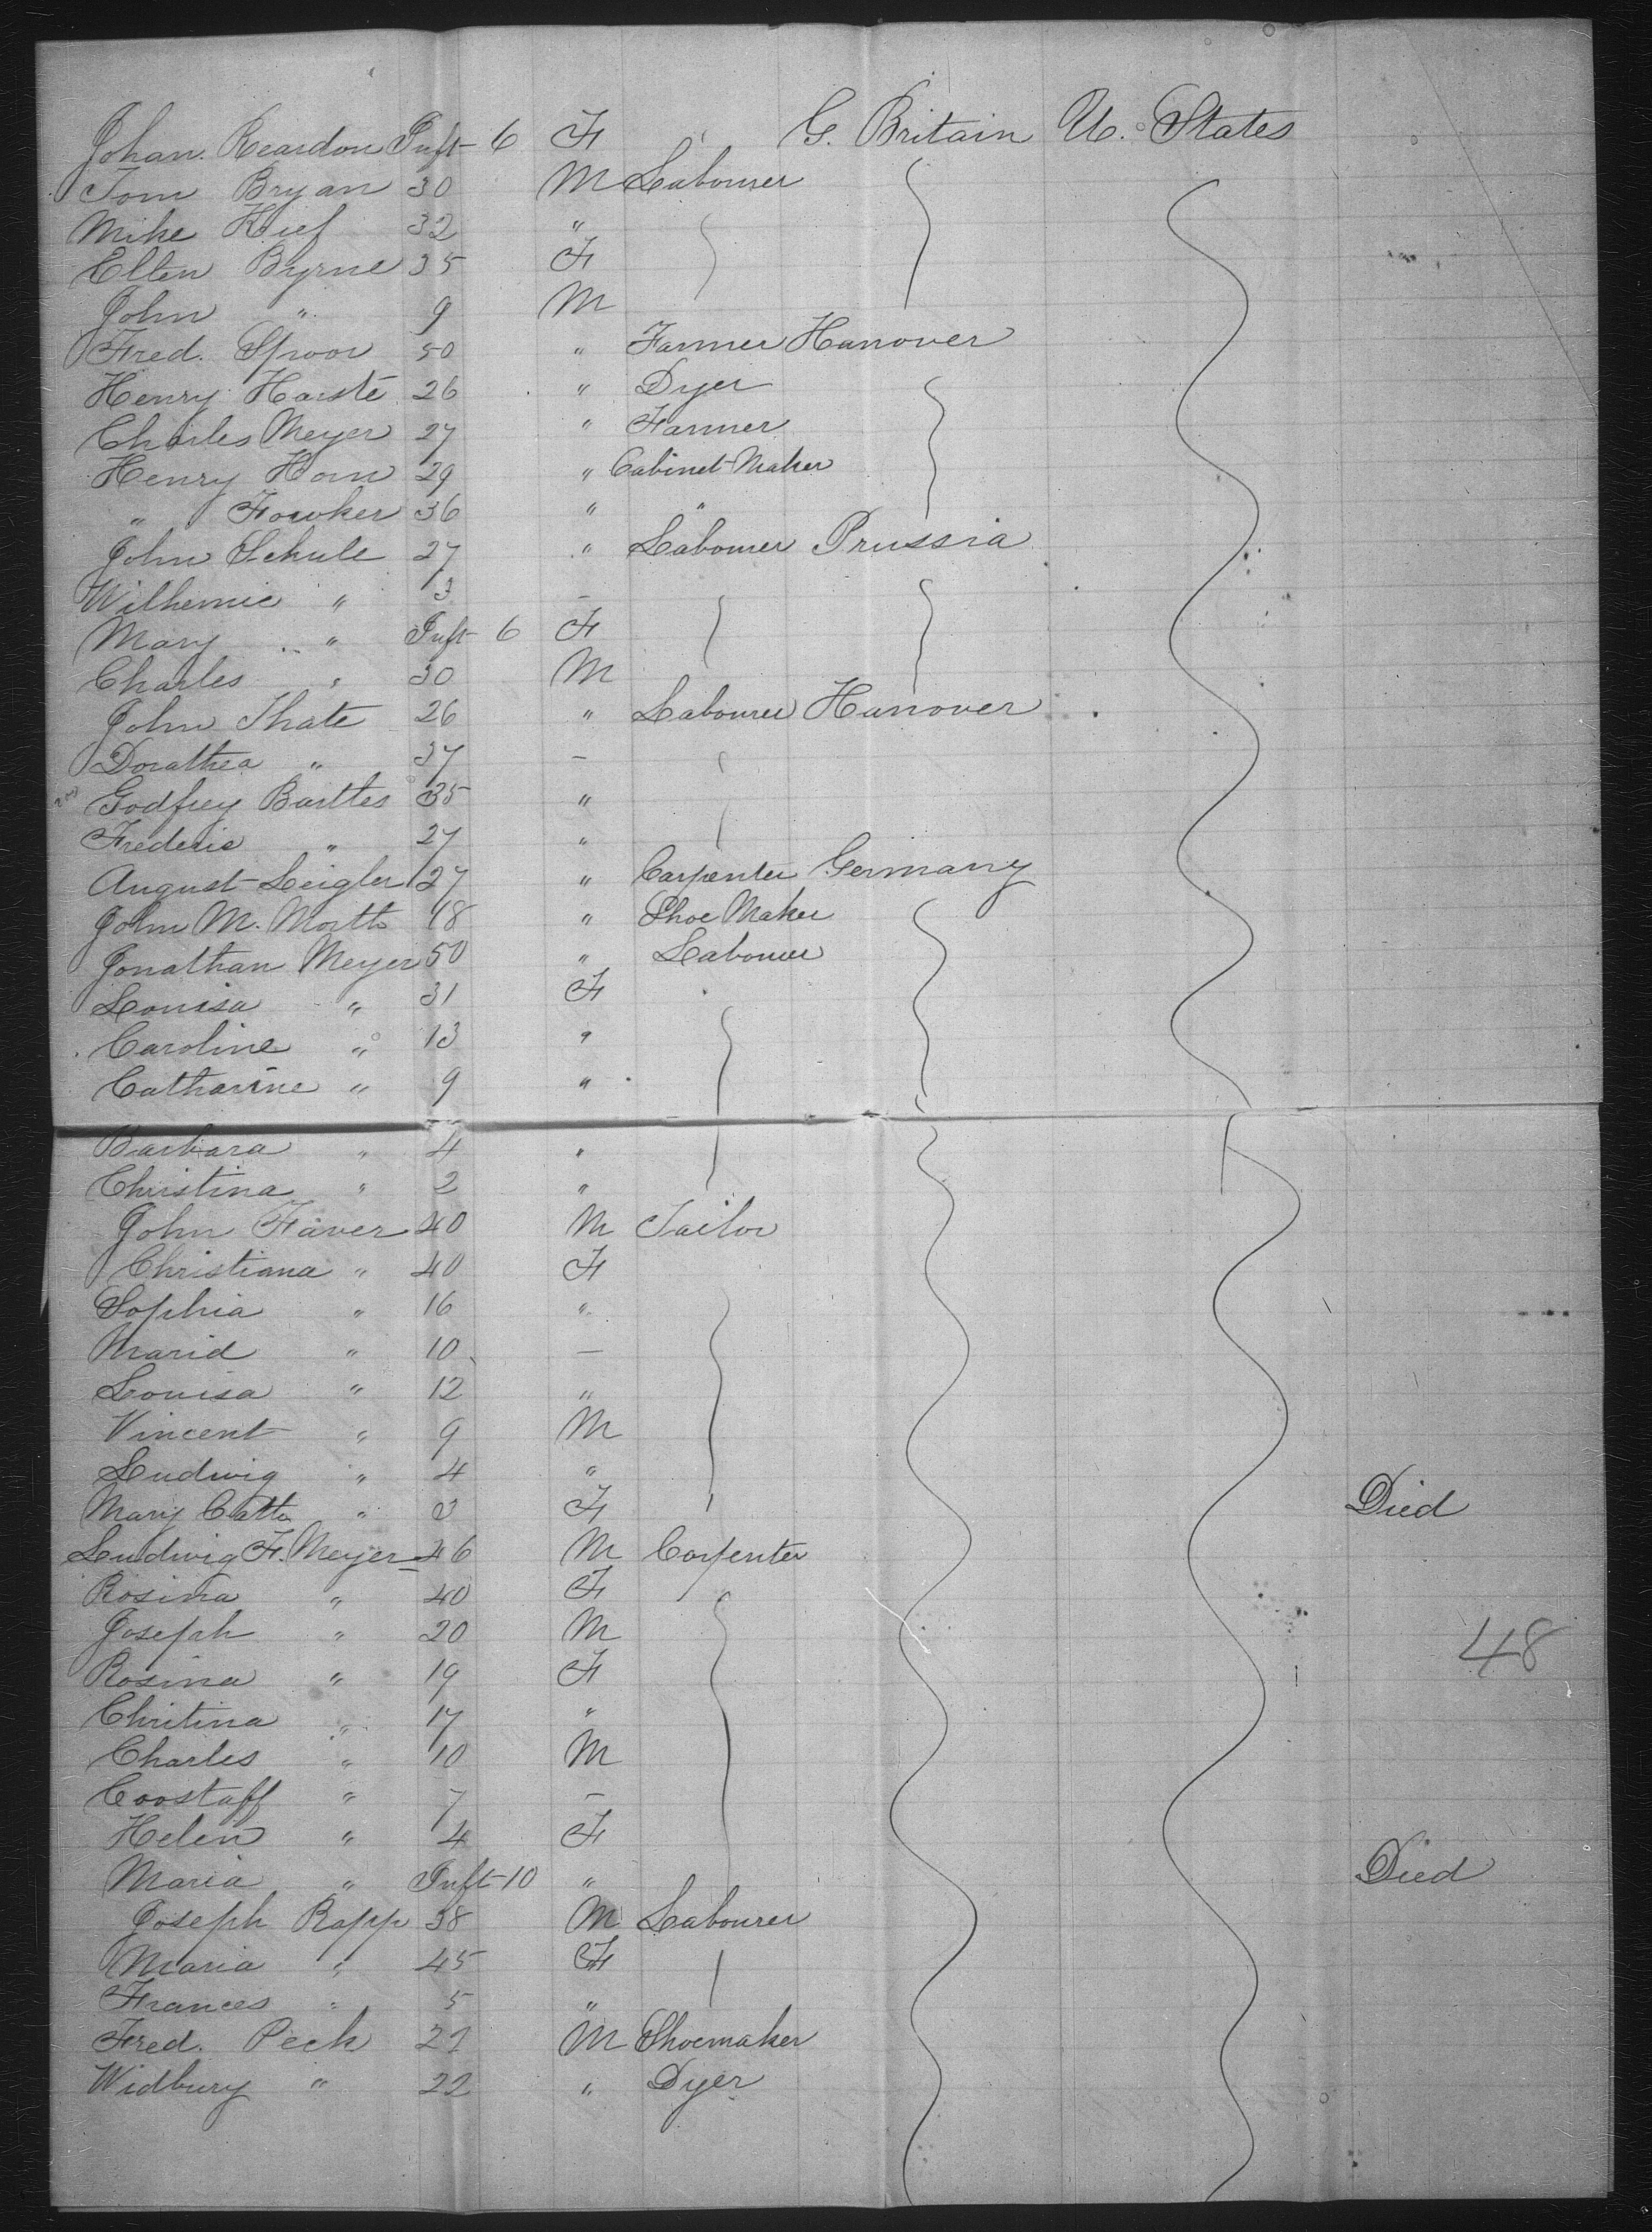 Johan. Reardon Inft 6 F G. Britain U. States
Tom Bryan 30 M Labourer
Mike Kief 32 "
Ellen Byrne 35 F
John " 9 M
Fred. Spoor 50 " Farmer Hanover
Henry Harste 26 " Dyer
Charles Meyer 27 " Farmer
Henry Horn 29 " Cabinet Maker
" Fowker 36 " "
John Schule 27 " Labourer Prussia
Wilhemie " 3 –
Mary " Inft 6 F
Charles " 30 M
John Thate 26 " Labourer Hanover
Dorathea " 37 –
Godfrey Barttes 35 "
Frederic " 27 "
August Leigler 27 " Carpenter Germany
John M. Morth 18 " Shoe Maker
Jonathan Meyer 50 " Labourer
Louisa " 31 F
Caroline " 13 "
Catharine " 9 "
Barbara " 4 "
Christina " 2 "
John Faver 40 M Tailor
Christiana " 40 F
Sophia " 16 "
Marid " 10 –
Louisa " 12 "
Vincent " 9 M
Ludwig " 4 "
Mary Catta " 3 F Died
Ludwig F. Meyer 46 M Carpenter
Rosina " 40 F
Joseph " 20 M 48
Rosina " 19 F
Chritina " 17 "
Charles " 10 M
Coostaff " 7 –
Helen " 4 F
Maria " Inft 10 " Died
Joseph Rapp 38 M Labourer
Maria " 45 F
Frances " 5 "
Fred. Peck 22 M Shoemaker
Widbury " 22 " Dyer